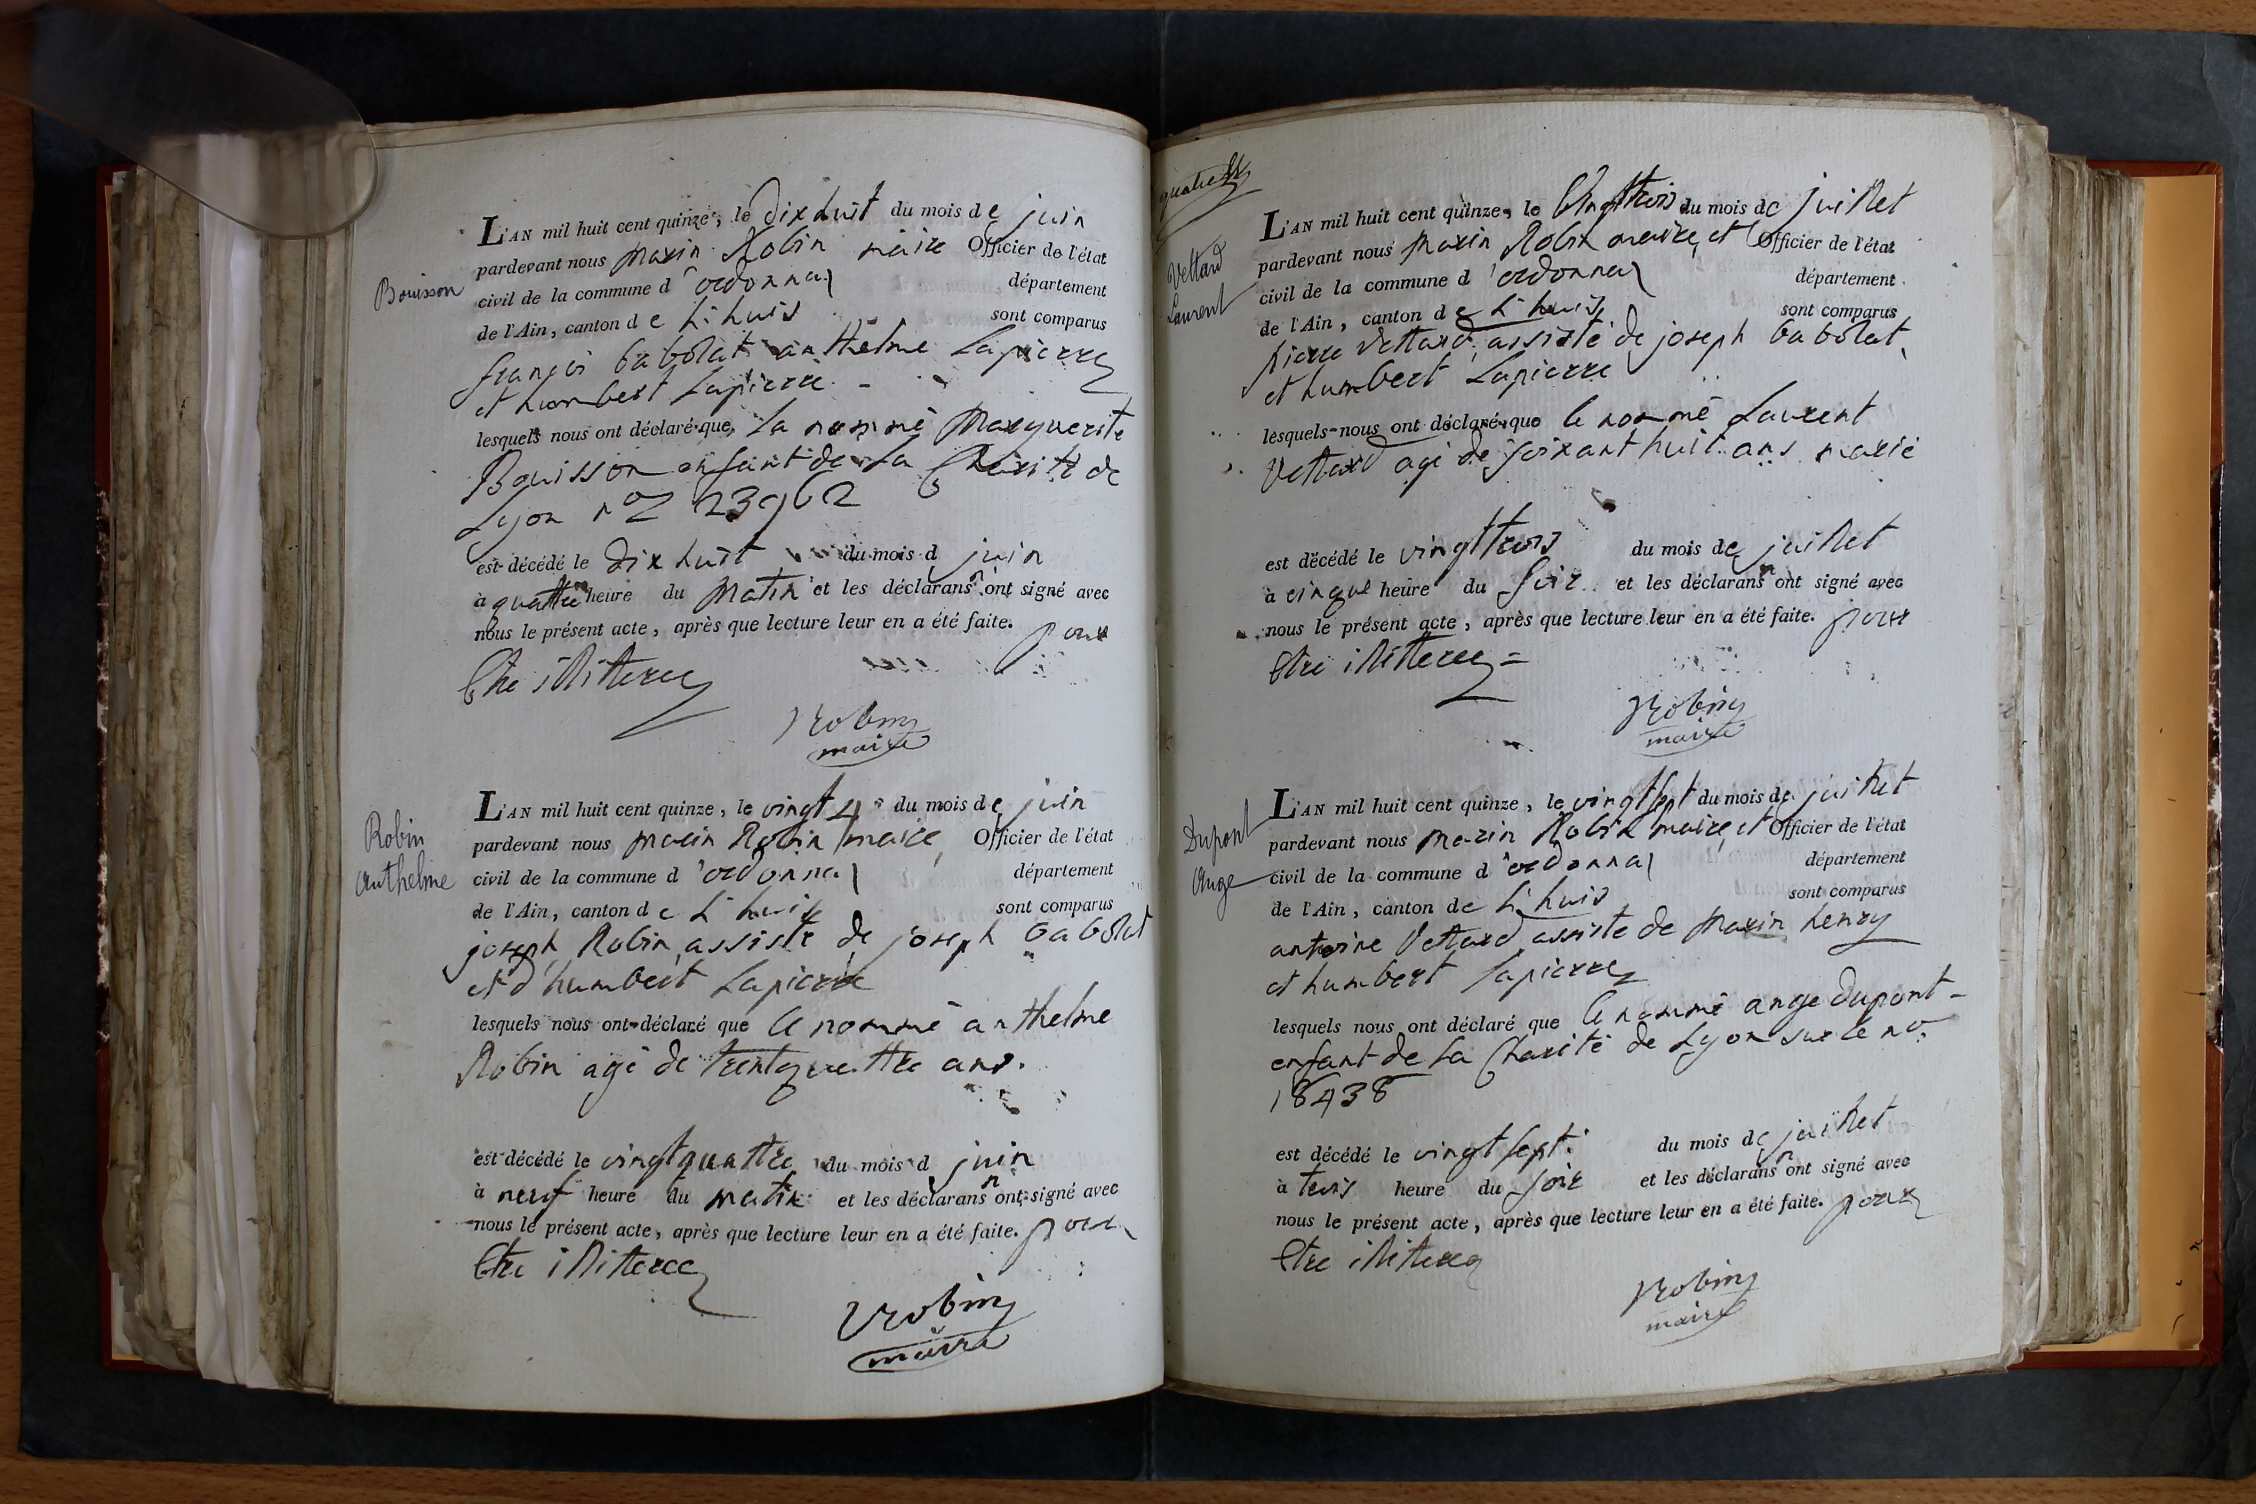 Bouisson
L'AN mil huit cent quinze, le dix huit du mois de juin
pardevant nous marin Robin maire Officier de l'état
civil de la commune d'ordonnas département
de l'Ain, canton de L'huis sont comparus
françois babolat anthelme Lapierre
et humbert Lapierre
lesquels nous ont déclaré que La nommé Marguerite
Bouisson enfant de La Charité de
Lyon no 23962
est décédé le dix huit du mois d juin
à quattre heure du Matin et les déclarans n ont signé avec
nous le présent acte, après que lecture leur en a été faite. pour
Etre illiteree
Robin
maire
Robin
Anthelme
L'AN mil huit cent quinze, le vingt 4 du mois de juin
pardevant nous marin Robin maire, Officier de l'état
civil de la commune d'ordonnas département
de l'Ain, canton de L'huis sont comparus
joseph Robin, assisté de joseph babolat
et d'humbert Lapierre
lesquels nous ont déclaré que le nommé anthelme
Robin agé de trentequattre ans.
est décédé le vingtquattre du mois d juin
à neuf heure du matin et les déclarans n ont signé avec
nous le présent acte, après que lecture leur en a été faite. pour
Etre illiteree
Robin
maire
Vettard
Laurent
L'AN mil huit cent quinze, le Vingttrois du mois de juillet
pardevant nous marin Robin maire, et Officier de l'état
civil de la commune d'ordonnas département
de l'Ain, canton de L'huis sont comparus
pierre Vettard, assisté de joseph babolat,
et humbert Lapierre
lesquels nous ont déclaré que le nommé Laurent
Vettard agé de soixant huit ans marié
est décédé le vingttrois du mois de juillet
à cinque heure du soir et les déclarans n ont signé avec
nous le présent acte, après que lecture leur en a été faite. pour
Etre illiteree =
Robin
maire
Dupont
Ange
L'AN mil huit cent quinze, le vingtsept du mois de juillet
pardevant nous marin Robin maire, et Officier de l'état
civil de la commune d'ordonnas département
de l'Ain, canton de L'huis sont comparus
antoine Vettard assisté de Marin henry
et humbert Lapierre
lesquels nous ont déclaré que le nommé ange dupont -
enfant de La Charité de Lyon sur le no.
18438
est décédé le vingt sept du mois de juillet
à trois heure du soir et les déclarans n ont signé avec
nous le présent acte, après que lecture leur en a été faite. pour
Etre illiteree
Robin
maire